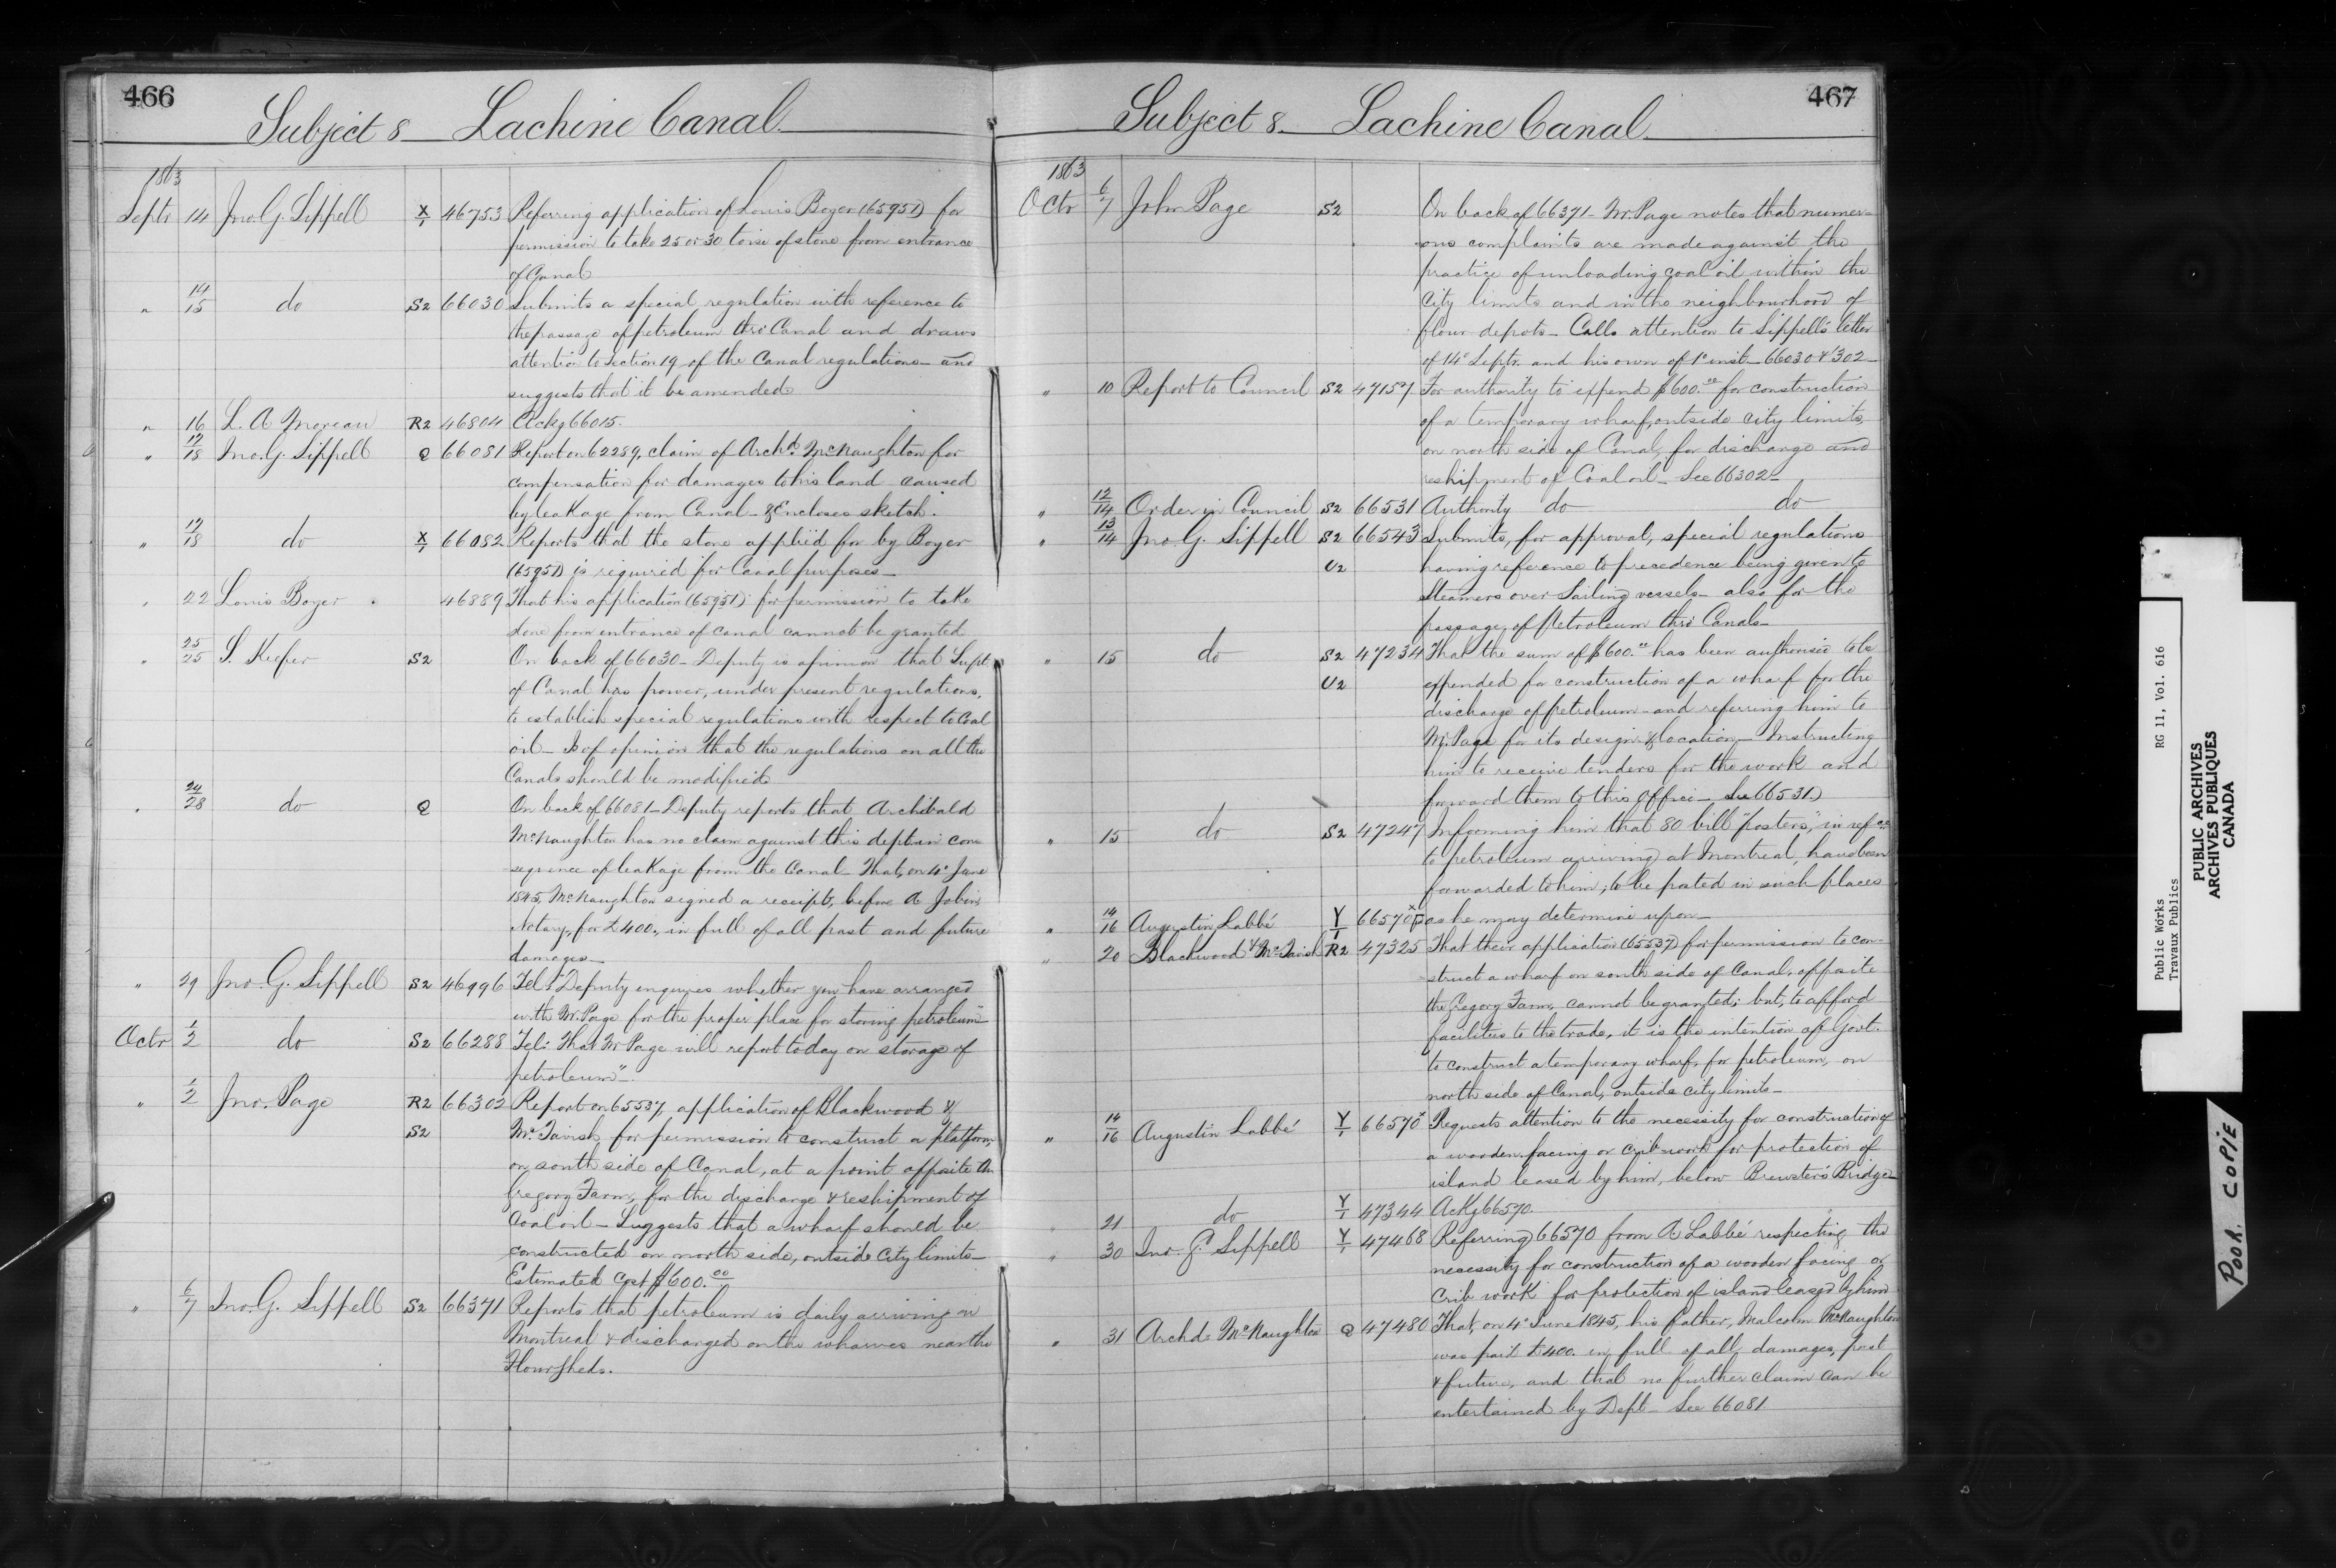 466
Subject 8 Lachine Canal
1863
Septr 14 Jno. G. Sippell X/1 46753 Referring application of Louis Boyer (65951) for
permission to take 25 or 30 toise of stone from entrance
of Canal
" 14/15 do S2 66030 Submits a special regulation with reference to
the passage of petroleum thro' Canal and draws
attention to Section 19 of the Canal regulations - and
suggests that it be amended
" 16 L. A Moreau R2 46804 Ackg 66015.
" 17/18 Jno. G. Sippell Q 66081 Report on 62289, claim of Archd McNaughton for
compensation for damages to his land caused
by leakage from Canal - & Encloses sketch.
" 17/18 do X/1 66082 Reports that the stone applied for by Boyer
(65951) is required for Canal purposes -
" 22 Louis Boyer 46889 That his application (65951) for permission to take
stone from entrance of canal cannot be granted
" 25/25 S. Keefer S2 On back of 66030 - Deputy is opinion that Supt
of Canal has power, under present regulations,
to establish special regulations with respect to Coal
oil - Is of opinion that the regulations on all the
Canals should be modified
" 24/28 do Q On back of 66081 - Deputy reports that Archibald
McNaughton has no claim against this dept in con
sequence of leakage from the Canal - That, on 4th June
1845, McNaughton signed a receipt, before A Jobin
Notary, for £400., in full of all past and future
damages -
" 29 Jno. G. Sippell S2 46996 Tel: "Deputy enquires whether you have arranged
with Mr. Page for the proper place for storing petroleum"
Octr 1/2 do S2 66288 Tel: That Mr Page will report today on storage of
petroleum" -
" 1/2 Jno. Page R2 66302 Report on 65537, application of Blackwood &
S2 McTavish for permission to construct a platform
on south side of Canal, at a point opposite the
Gregory Farm, for the discharge & reshipment of
Coal oil - Suggests that a wharf should be
constructed on north side, outside City limits -
Estimated Cost $600.00
" 6/7 Jno. G. Sippell S2 66371 Reports that petroleum is daily arriving in
Montreal & discharged on the wharves near the
Flour Sheds.
467
Subject 8. Lachine Canal
1863
Octr 6/7 John Page S2 On back of 66371 - Mr. Page notes that numer-
ous complaints are made against the
practice of unloading coal oil within the
City limits and in the neighbourhood of
flour depots - Calls attention to Sippell's letter
of 14th Septr. and his own of 1st inst - 66030 & 302 -
" 10 Report to Council S2 47157 For authority to expend $600.00 for construction
of a temporary wharf, outside city limits,
on north side of Canal, for discharge and
reshipment of Coal oil - See 66302 -
" 12/14 Order in Council S2 66531 Authority do do
" 13/14 Jno. G. Sippell S2 66543 Submits, for approval, special regulations
U2 having reference to precedence being given to
Steamers over Sailing vessels - also for the
passage of Petroleum thro' Canals -
" 15 do S2 47234 That the sum of $600.00 has been authorised to be
U2 expended for construction of a wharf for the
discharge of petroleum - and referring him to
Mr. Page for its design & location - Instructing
him to receive tenders for the work and
forward them to this Office - See 66531)
" 15 do S2 47247 Informing him that 80 bill "posters," in refce
to petroleum arriving at Montreal, have been
forwarded to him; to be posted in such places
" 14/16 Augustin Labbé Y/1 66570 as he may determine upon -
" 20 Blackwood & McTavish R2 47325 That their application (65537) for permission to con-
struct a wharf on south side of Canal, opposite
the Gregory Farm, cannot be granted; but, to afford
facilities to the trade, it is the intention of Govt.
to construct a temporary wharf, for petroleum, on
north side of Canal, outside city limits -
" 14/16 Augustin Labbé Y/1 66570 Requests attention to the necessity for construction of
a wooden facing or crib work for protection of
island leased by him, below Brewster's Bridge -
" 21 do Y/1 47344 Ackg 66570
" 30 Jno. G. Sippell Y/1 47468 Referring 66570 from A Labbé respecting the
necessity for construction of a wooden facing or
Crib work for protection of island leased by him
" 31 Archd. McNaughton Q 47480 That, on 4th June 1845, his father, Malcolm McNaughton
was paid £400. in full of all damages, past
& future, and that no further claim can be
entertained by Dept - See 66081
Public Works RG 11, Vol. 616
Travaux Publics
PUBLIC ARCHIVES
ARCHIVES PUBLIQUES
CANADA
POOR COPIE